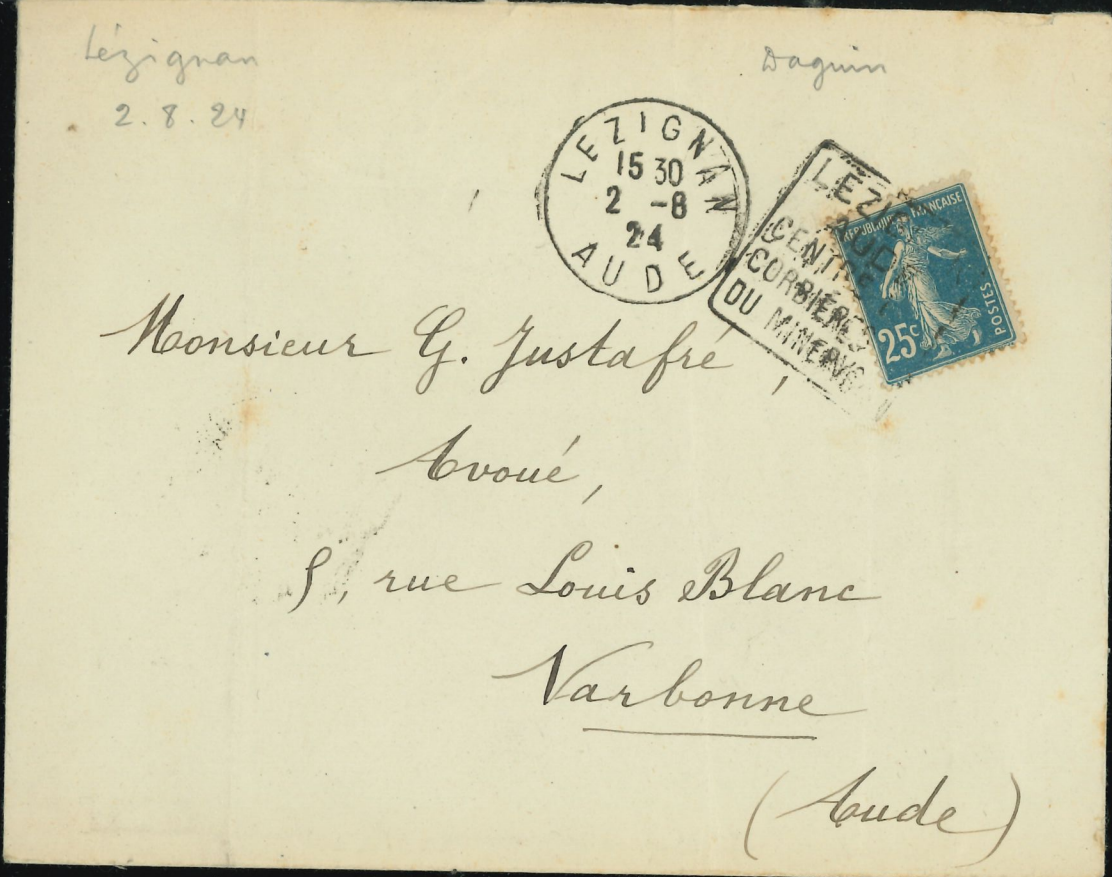 Lézignan
2.8.24
Daguin
LEZIGNAN
15 30
2 -8
24
AUDE
LEZIG
AUDE
CENTRE
CORBIÈRES
DU MINERVOIS
RÉPUBLIQUE FRANÇAISE
POSTES
25c
Monsieur G. Justafré,
Avoué,
5, rue Louis Blanc
Narbonne
(Aude)